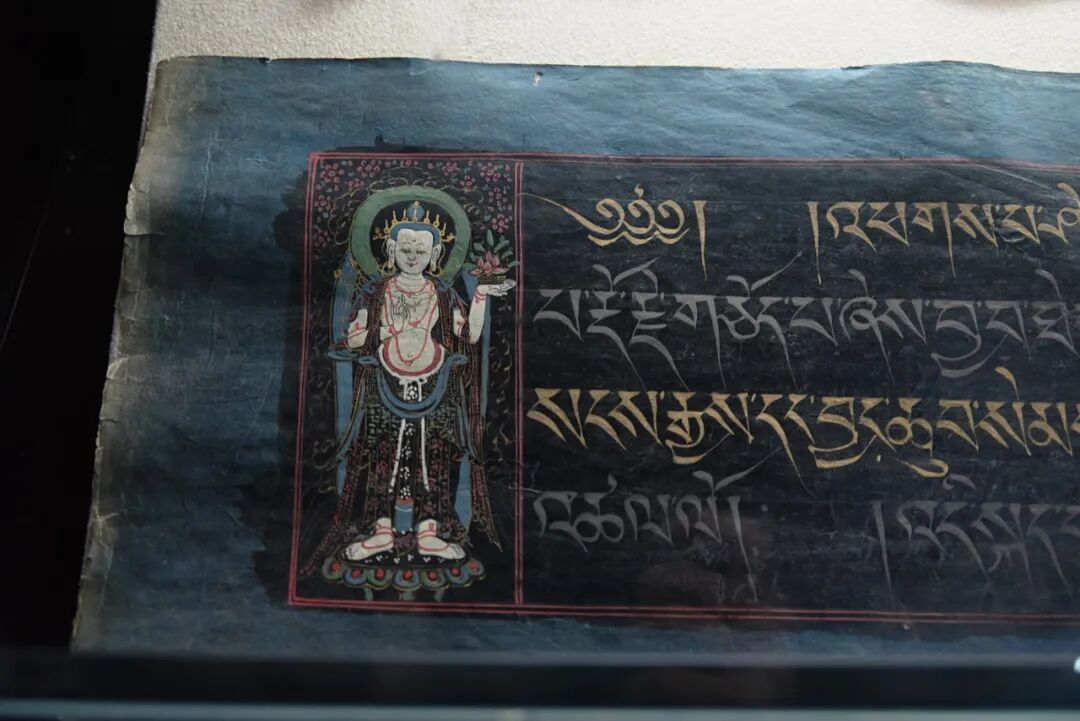 ༄༅། །འཕགས་པ་
པ་རྡོ་རྗེ་གཅོད་པ་ཞེས་བྱ་བ་
སངས་རྒྱས་དང་བྱང་ཆུབ་སེམས
འཚལ་ལོ། །འདི་སྐད་